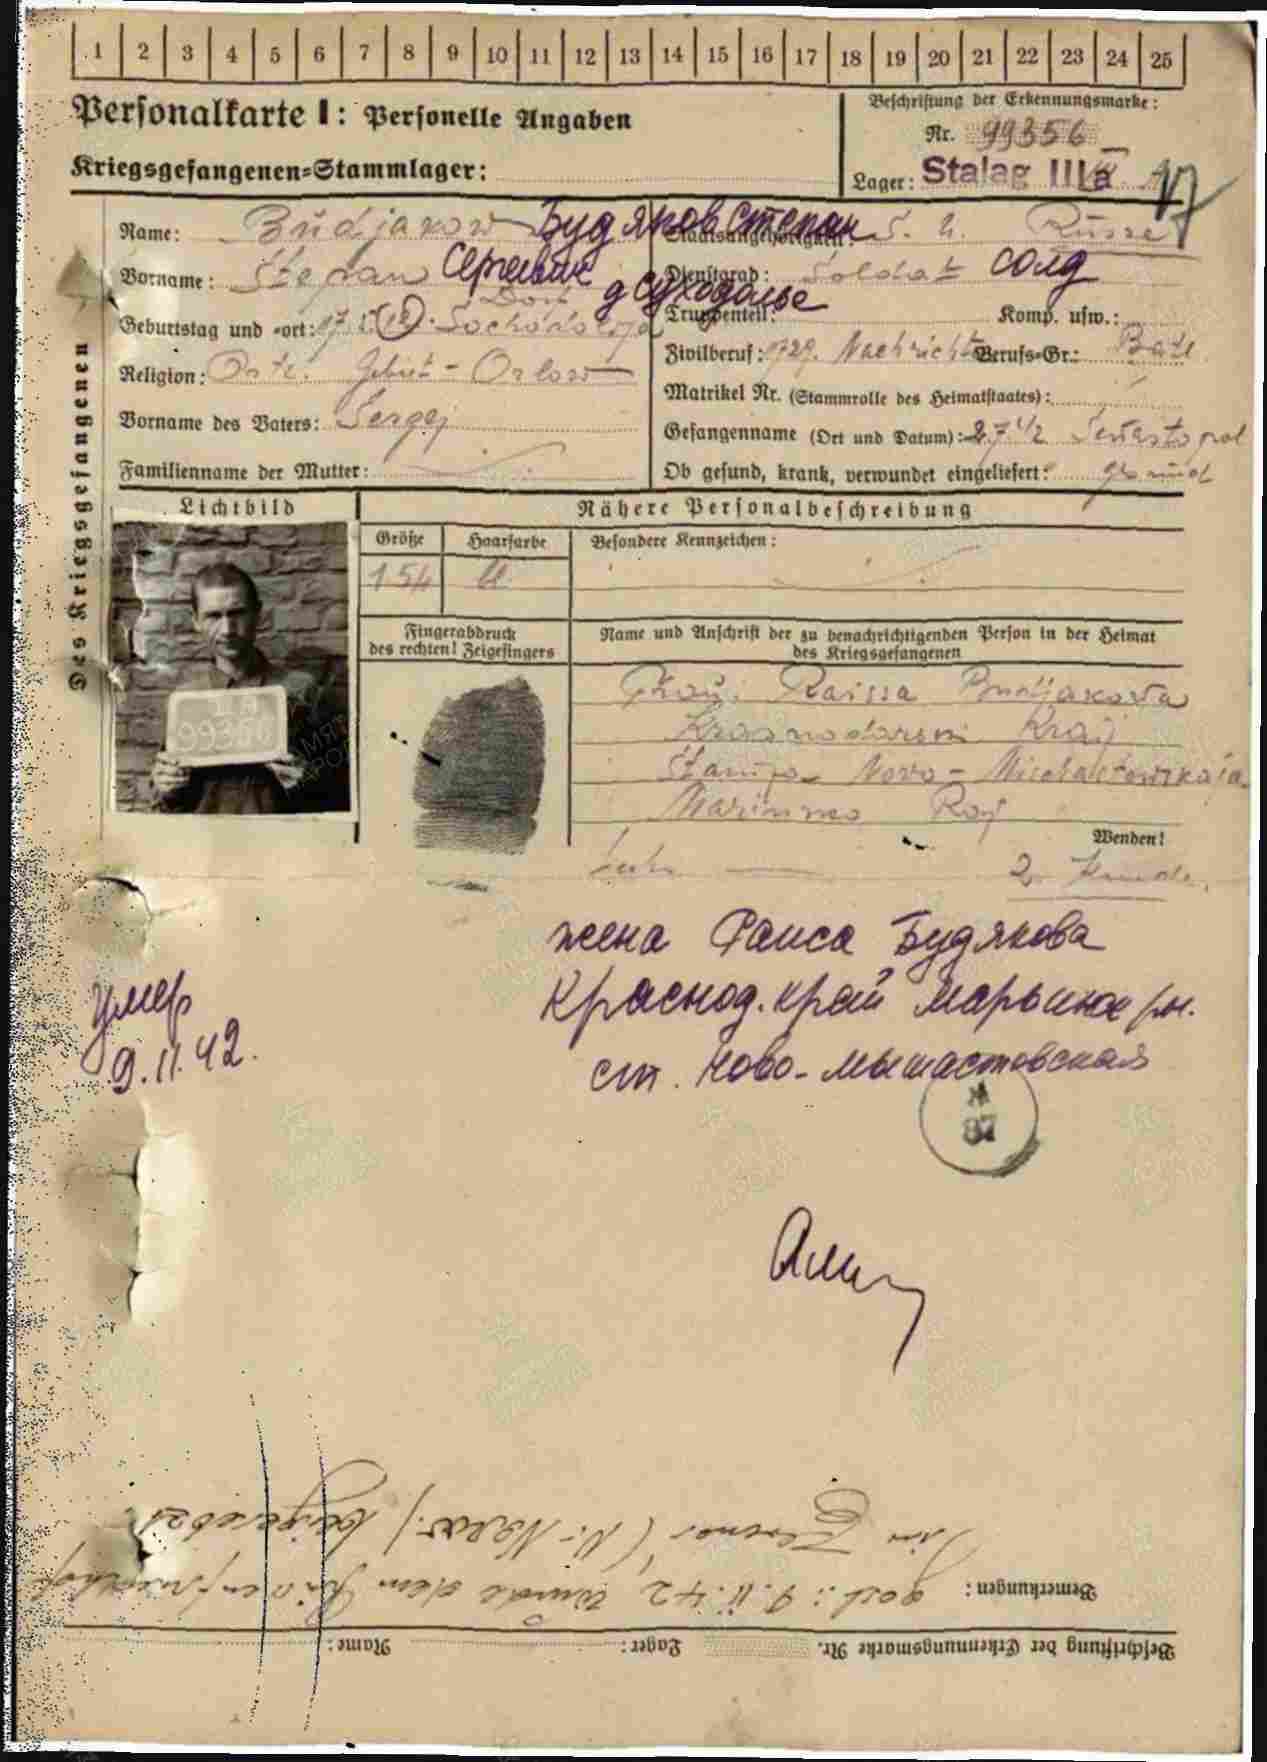 1 2 3 4 5 6 7 8 9 10 11 12 13 14 15 16 17 18 19 20 21 22 23 24 25
Personalkarte I: Personelle Angaben
Beschriftung der Erkennungsmarke:
Nr. 99356
Kriegsgefangenen=Stammlager:
Lager: Stalag III a
17
Des Kriegsgefangenen
Name: Budjakow Будяков Степан
Staatsangehörigkeit: S. U. Russe
Vorname: Stepan Сергеевич
Dienstgrad: Soldat солд
Dorf д Суходолье
Geburtstag und =ort:
Truppenteil: Komp. usw.:
Religion: Gebiet - Orlow
Zivilberuf: Berufs=Gr.:
Vorname des Vaters: Sergej
Matrikel Nr. (Stammrolle des Heimatstaates):
Familienname der Mutter:
Gefangenname (Ort und Datum): Sewastopol
Ob gesund, krank, verwundet eingeliefert: gesund
Lichtbild
Nähere Personalbeschreibung
Größe Haarfarbe Besondere Kennzeichen:
154
Fingerabdruck
des rechten! Zeigefingers
Name und Anschrift der zu benachrichtigenden Person in der Heimat
des Kriegsgefangenen
Frau: Raissa Budjakowa
Krasnodarski Kraj
Staniza Nowo-
Marinino Raj
99356
Wenden!
жена Раиса Будякова
Краснод. край Марьинск р-н.
ст. Ново-Мышастовская
умер
9.11.42.
87
Bemerkungen: gest.: 9.11.42 wurde dem
Beschriftung der Erkennungsmarke Nr. Lager: Name: